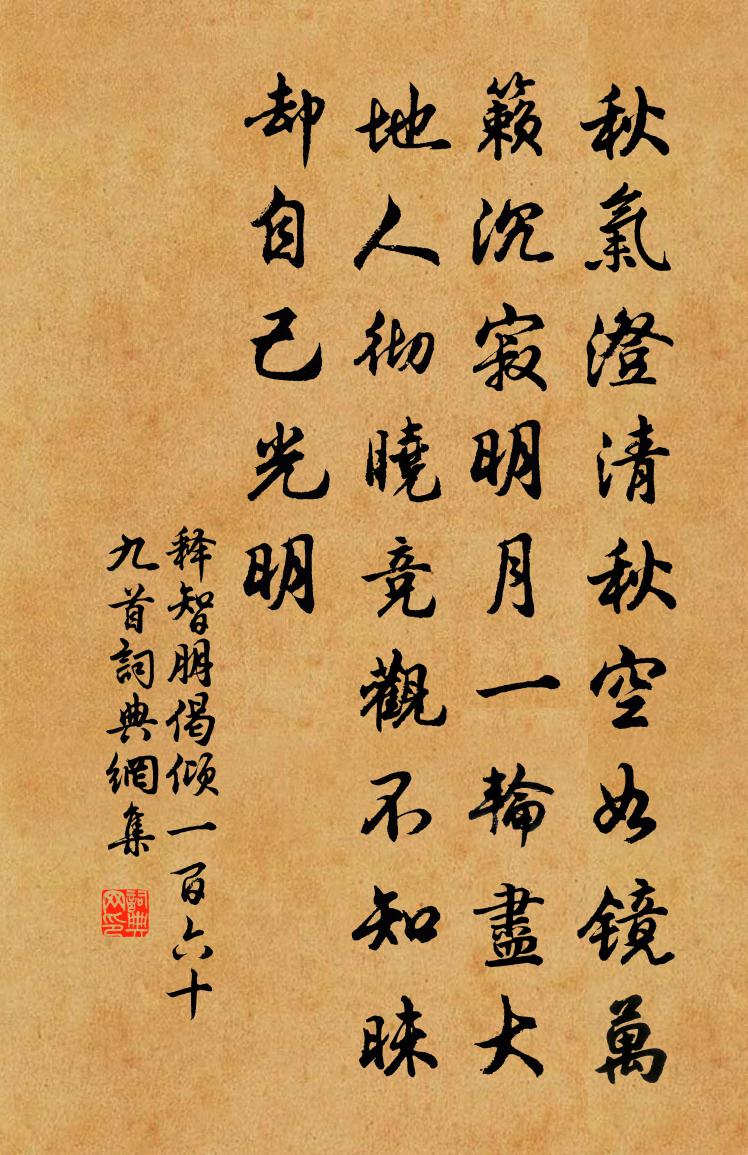 秋氣澄清秋空如鏡萬
籟沉寂明月一輪盡大
地人彻曉竞觀不知昧
却自己光明
释智朋偈倾一百六十
九首詞典網集
詞典网印